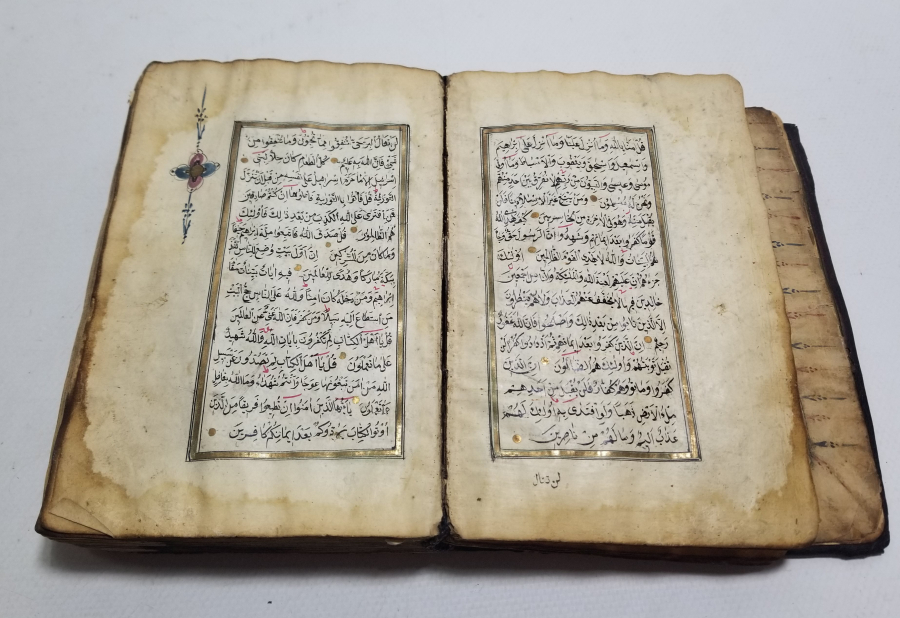 قل امنا بالله وما انزل علينا وما انزل على ابراهيم
واسمعيل واسحق ويعقوب والاسباط وما اوتى
موسى وعيسى والنبيون من ربهم لا نفرق بين احد منهم
ونحن له مسلمون ومن يبتغ غير الاسلام دينا فلن
يقبل منه وهو فى الاخرة من الخاسرين كيف يهدى الله
قوما كفروا بعد ايمانهم وشهدوا ان الرسول حق و
جاءهم البينات والله لا يهدى القوم الظالمين اولئك
جزاؤهم ان عليهم لعنة الله والملئكة والناس اجمعين
خالدين فيها لا يخفف عنهم العذاب ولا هم ينظرون
الا الذين تابوا من بعد ذلك واصلحوا فان الله غفور
رحيم ان الذين كفروا بعد ايمانهم ثم ازدادوا كفرا لن
تقبل توبتهم واولئك هم الضالون ان الذين
كفروا وماتوا وهم كفار فلن يقبل من احدهم
ملء الارض ذهبا ولو افتدى به اولئك لهم
عذاب اليم وما لهم من ناصرين
لن تنال
لن تنالوا البر حتى تنفقوا مما تحبون وما تنفقوا من
شئ فان الله به عليم كل الطعام كان حلا لبنى
اسرائيل الا ما حرم اسرائيل على نفسه من قبل ان تنزل
التورية قل فأتوا بالتورية فاتلوها ان كنتم صادقين
فمن افترى على الله الكذب من بعد ذلك فاولئك
هم الظالمون قل صدق الله فاتبعوا ملة ابراهيم حنيفا
وما كان من المشركين ان اول بيت وضع للناس للذى
ببكة مباركا وهدى للعالمين فيه ايات بينات مقام
ابراهيم ومن دخله كان امنا ولله على الناس حج البيت
من استطاع اليه سبيلا ومن كفر فان الله غنى عن العالمين
قل يا اهل الكتاب لم تكفرون بايات الله والله شهيد
على ما تعملون قل يا اهل الكتاب لم تصدون عن سبيل
الله من امن تبغونها عوجا وانتم شهداء وما الله بغافل
عما تعملون يا ايها الذين امنوا ان تطيعوا فريقا من الذين
اوتوا الكتاب يردوكم بعد ايمانكم كافرين